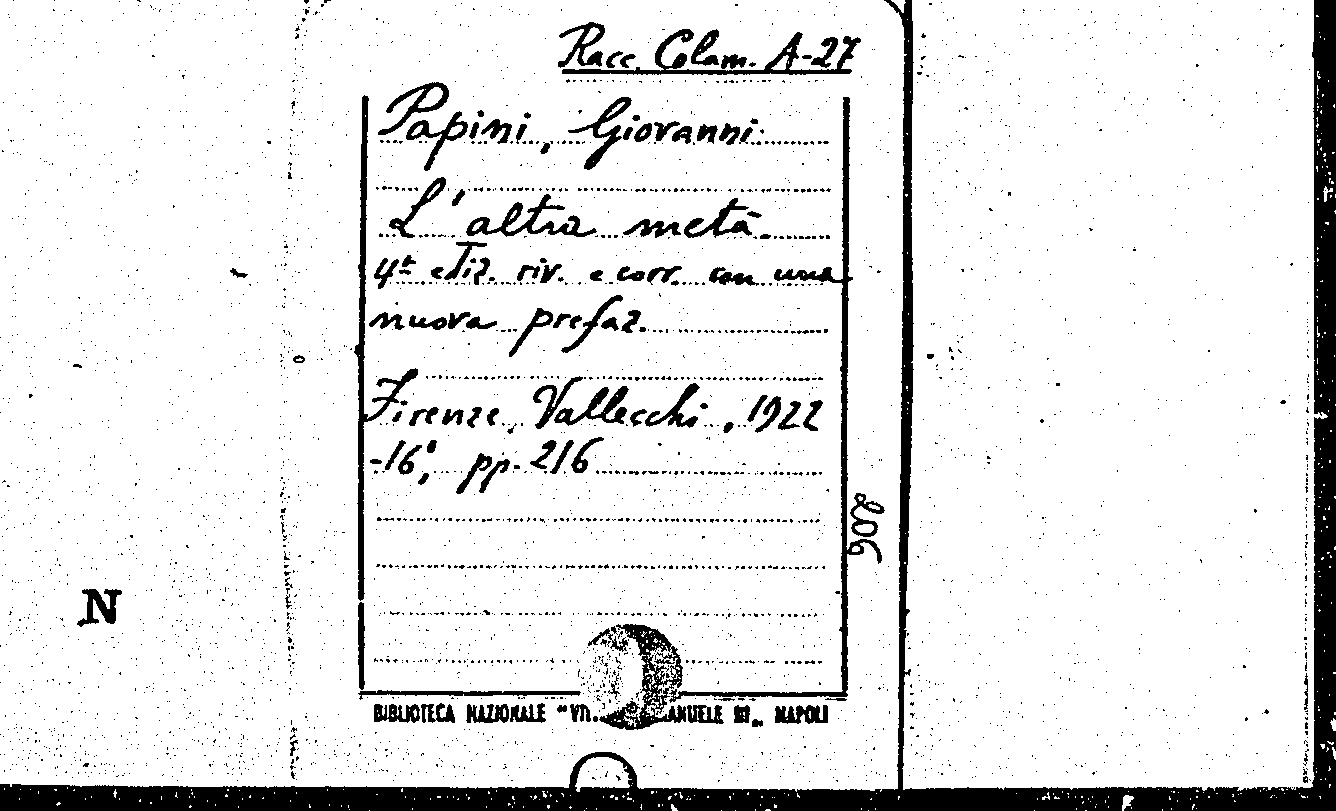 Racc. Colam. A-27
Papini, Giovanni.
L'altra metà.
4ª ediz. riv. e corr. con una
nuova prefaz.
Firenze, Vallecchi, 1922
-16°, pp. 216
206
N
BIBLIOTECA NAZIONALE "VITT. EMANUELE III„ NAPOLI